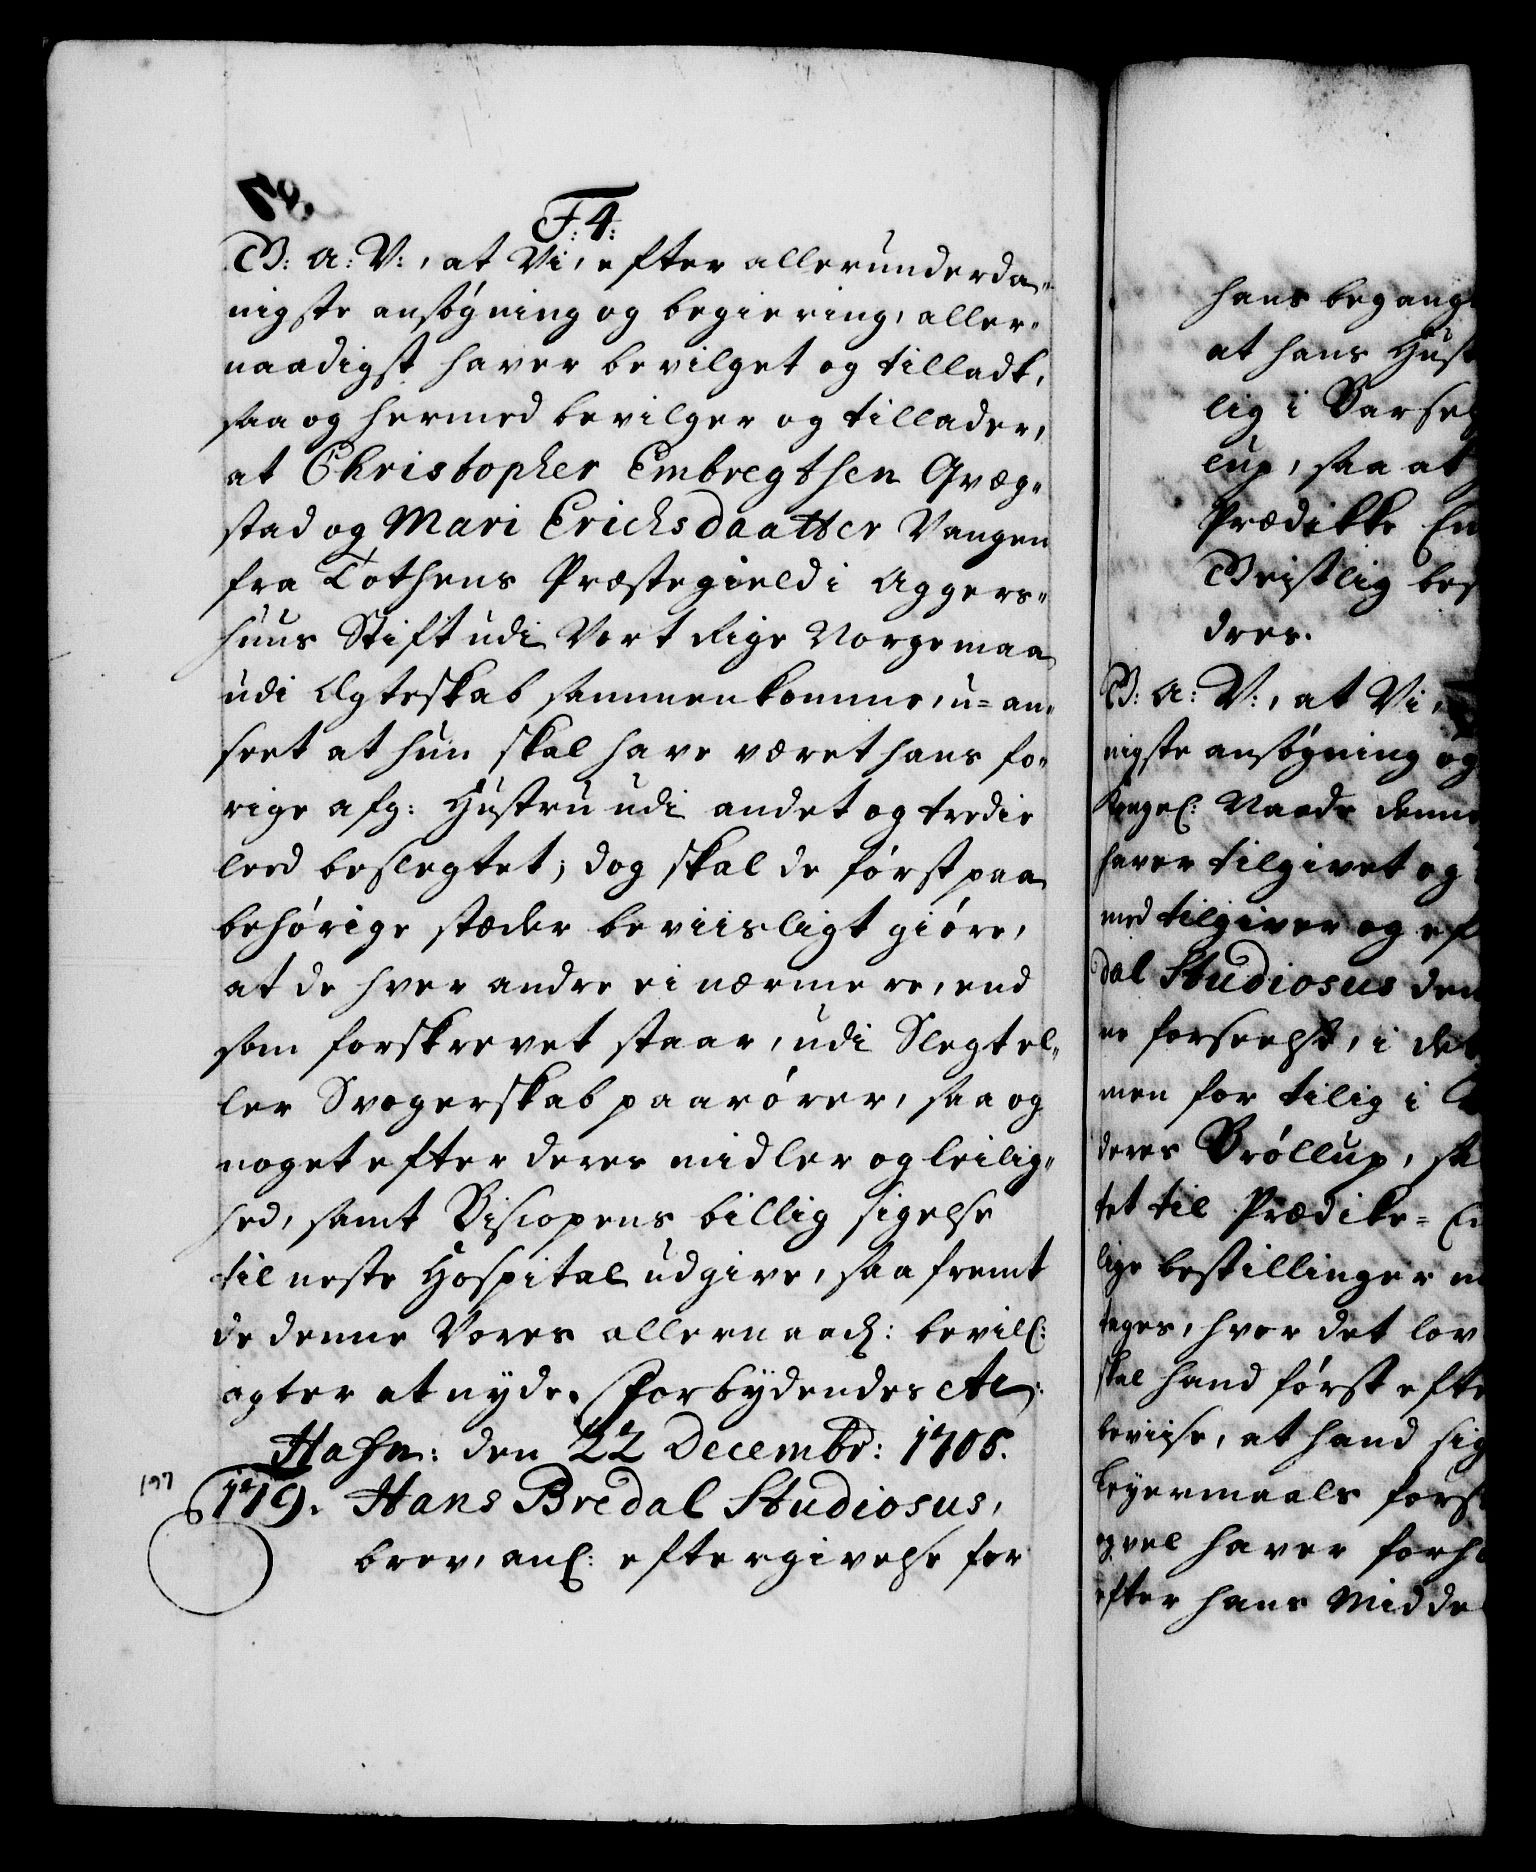 F: 4:
G: A: V:, at Vi, efter allerunderda„
nigste ansøgning og begiering, aller„
naadigst haver bevilget og tilladt,
saa og hermed bevilger og tillader,
at Christopher Embregthsen Qvæg„
stad og Mari Erichsdaatter Vangen
fra Tothens Præstegield i Aggers„
huus Stift udi Vort Rige Norge maa
udi Ægteskab sammenkomme, u=an„
seet at hun skal have været hans fo„
rige afg: Hustru udi andet og tredie
leed beslegtet; dog skal de først paa
behørige stæder beviisligt giøre,
at de hver andre ei nærmere, end
som forskrevet staar, udi Slegt el„
ler Svogerskab paarører, saa og
noget efter deres midler og leilig„
hed, samt Biscopens billig sigelse
til neste Hospital udgive, saafremt
de denne Vores allernaad: bevill:
agter at nyde. Forbydendes etc:
Hafn: den 22 Decembr: 1705.
197
179. Hans Bredal Studiosus,
brev, anl: eftergivelse for
hans begang
at hans Hust
lig i Barsel
lup, saa at
Prædikke Em
Geistlig bes
dres.
G: A: V:, at Vi,
nigste ansøgning og
Kongel: Naade denne
haver tilgivet og
med tilgiver og ef
dal Studiosus den
ne forseelse, i det
men for tilig i
deres Brøllup, sa
tet til Prædike=Em
lige bestillinger m
tages, hvor det lov
skal hand først efte
beviise, at hand sig
Leyermaals forse
og vel haver forho
efter hans Midde